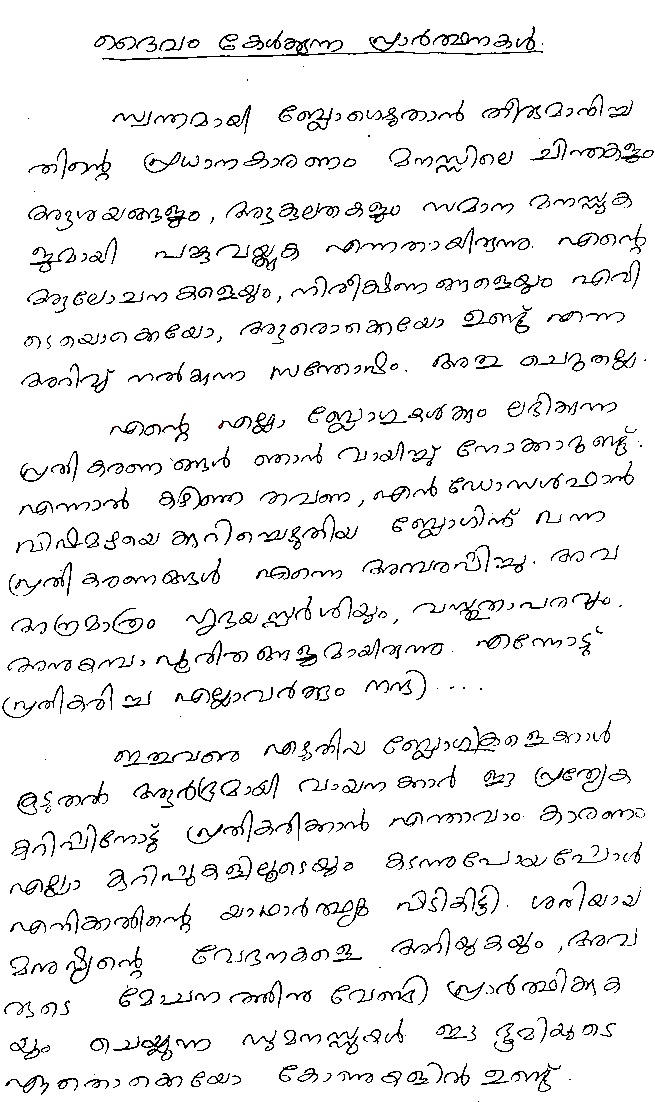 ദൈവം കേൾക്കുന്ന പ്രാർത്ഥനകൾ.
സ്വന്തമായി ബ്ലോഗെഴുതാൻ തീരുമാനിച്ച
തിന്റെ പ്രധാനകാരണം മനസ്സിലെ ചിന്തകളും
ആശയങ്ങളും, ആകുലതകളും സമാന മനസ്സുക
ളുമായി പങ്കുവയ്ക്കുക എന്നതായിരുന്നു. എന്റെ
ആലോചനകളെയും, നിരീക്ഷണങ്ങളെയും എവി
ടെയൊക്കെയോ, ആരൊക്കെയോ ഉണ്ട് എന്ന
അറിവ് നൽകുന്ന സന്തോഷം. അത് ചെറുതല്ല.
എന്റെ എല്ലാ ബ്ലോഗുകൾക്കും ലഭിക്കുന്ന
പ്രതികരണങ്ങൾ ഞാൻ വായിച്ചു നോക്കാറുണ്ട്.
എന്നാൽ കഴിഞ്ഞ തവണ, എൻഡോസൾഫാൻ
വിഷമഴയെ കുറിച്ചെഴുതിയ ബ്ലോഗിന് വന്ന
പ്രതികരണങ്ങൾ എന്നെ അമ്പരപ്പിച്ചു. അവ
അത്രമാത്രം ഹൃദയസ്പർശിയും, വസ്തുതാപരവും.
അനുകമ്പാപൂരിതങ്ങളുമായിരുന്നു. എന്നോട്
പ്രതികരിച്ച എല്ലാവർക്കും നന്ദി....
ഇതുവരെ എഴുതിയ ബ്ലോഗുകളെക്കാൾ
കൂടുതൽ ആർദ്രമായി വായനക്കാർ ഈ പ്രത്യേക
കുറിപ്പിനോട് പ്രതികരിക്കാൻ എന്താവാം കാരണം
എല്ലാ കുറിപ്പുകളിലൂടെയും കടന്നുപോയപ്പോൾ
എനിക്കതിന്റെ യാഥാർത്ഥ്യം പിടികിട്ടി. ശരിയായ
മനുഷ്യന്റെ വേദനകളെ അറിയുകയും, അവ
രുടെ മോചനത്തിനു വേണ്ടി പ്രാർത്ഥിക്കുക
യും ചെയ്യുന്ന സുമനസ്സുകൾ ഈ ഭൂമിയുടെ
ഏതൊക്കെയോ കോണുകളിൽ ഉണ്ട്.